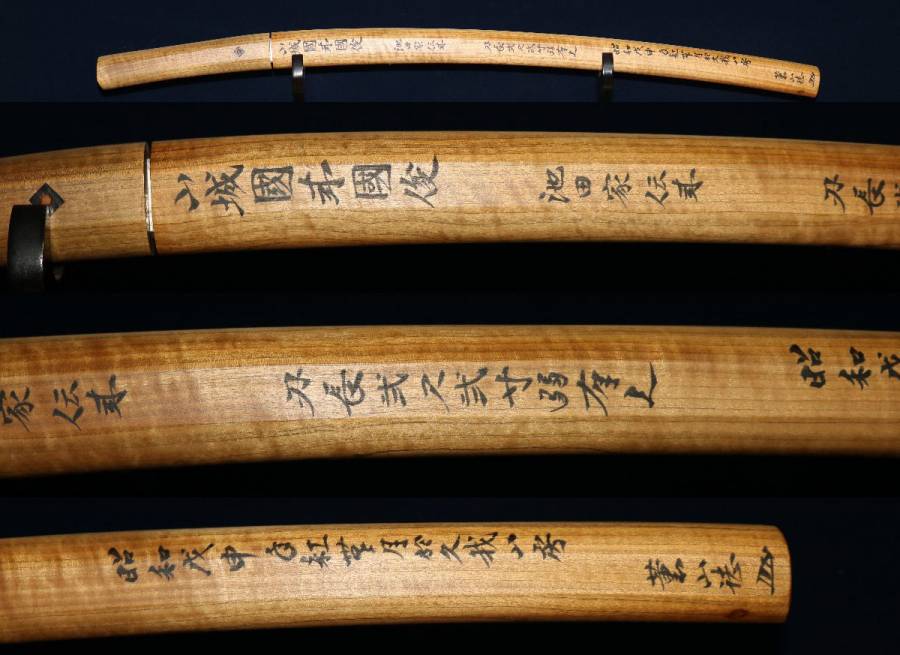 山城國来國俊 池田家伝来 刃長弐尺弐寸弱有之 昭和戊申年紅葉月於久我山房 薫山誌
山城國来國俊 池田家伝来 刃長
家伝来 刃長弐尺弐寸弱有之 昭和戊
昭和戊申年紅葉月於久我山房 薫山誌